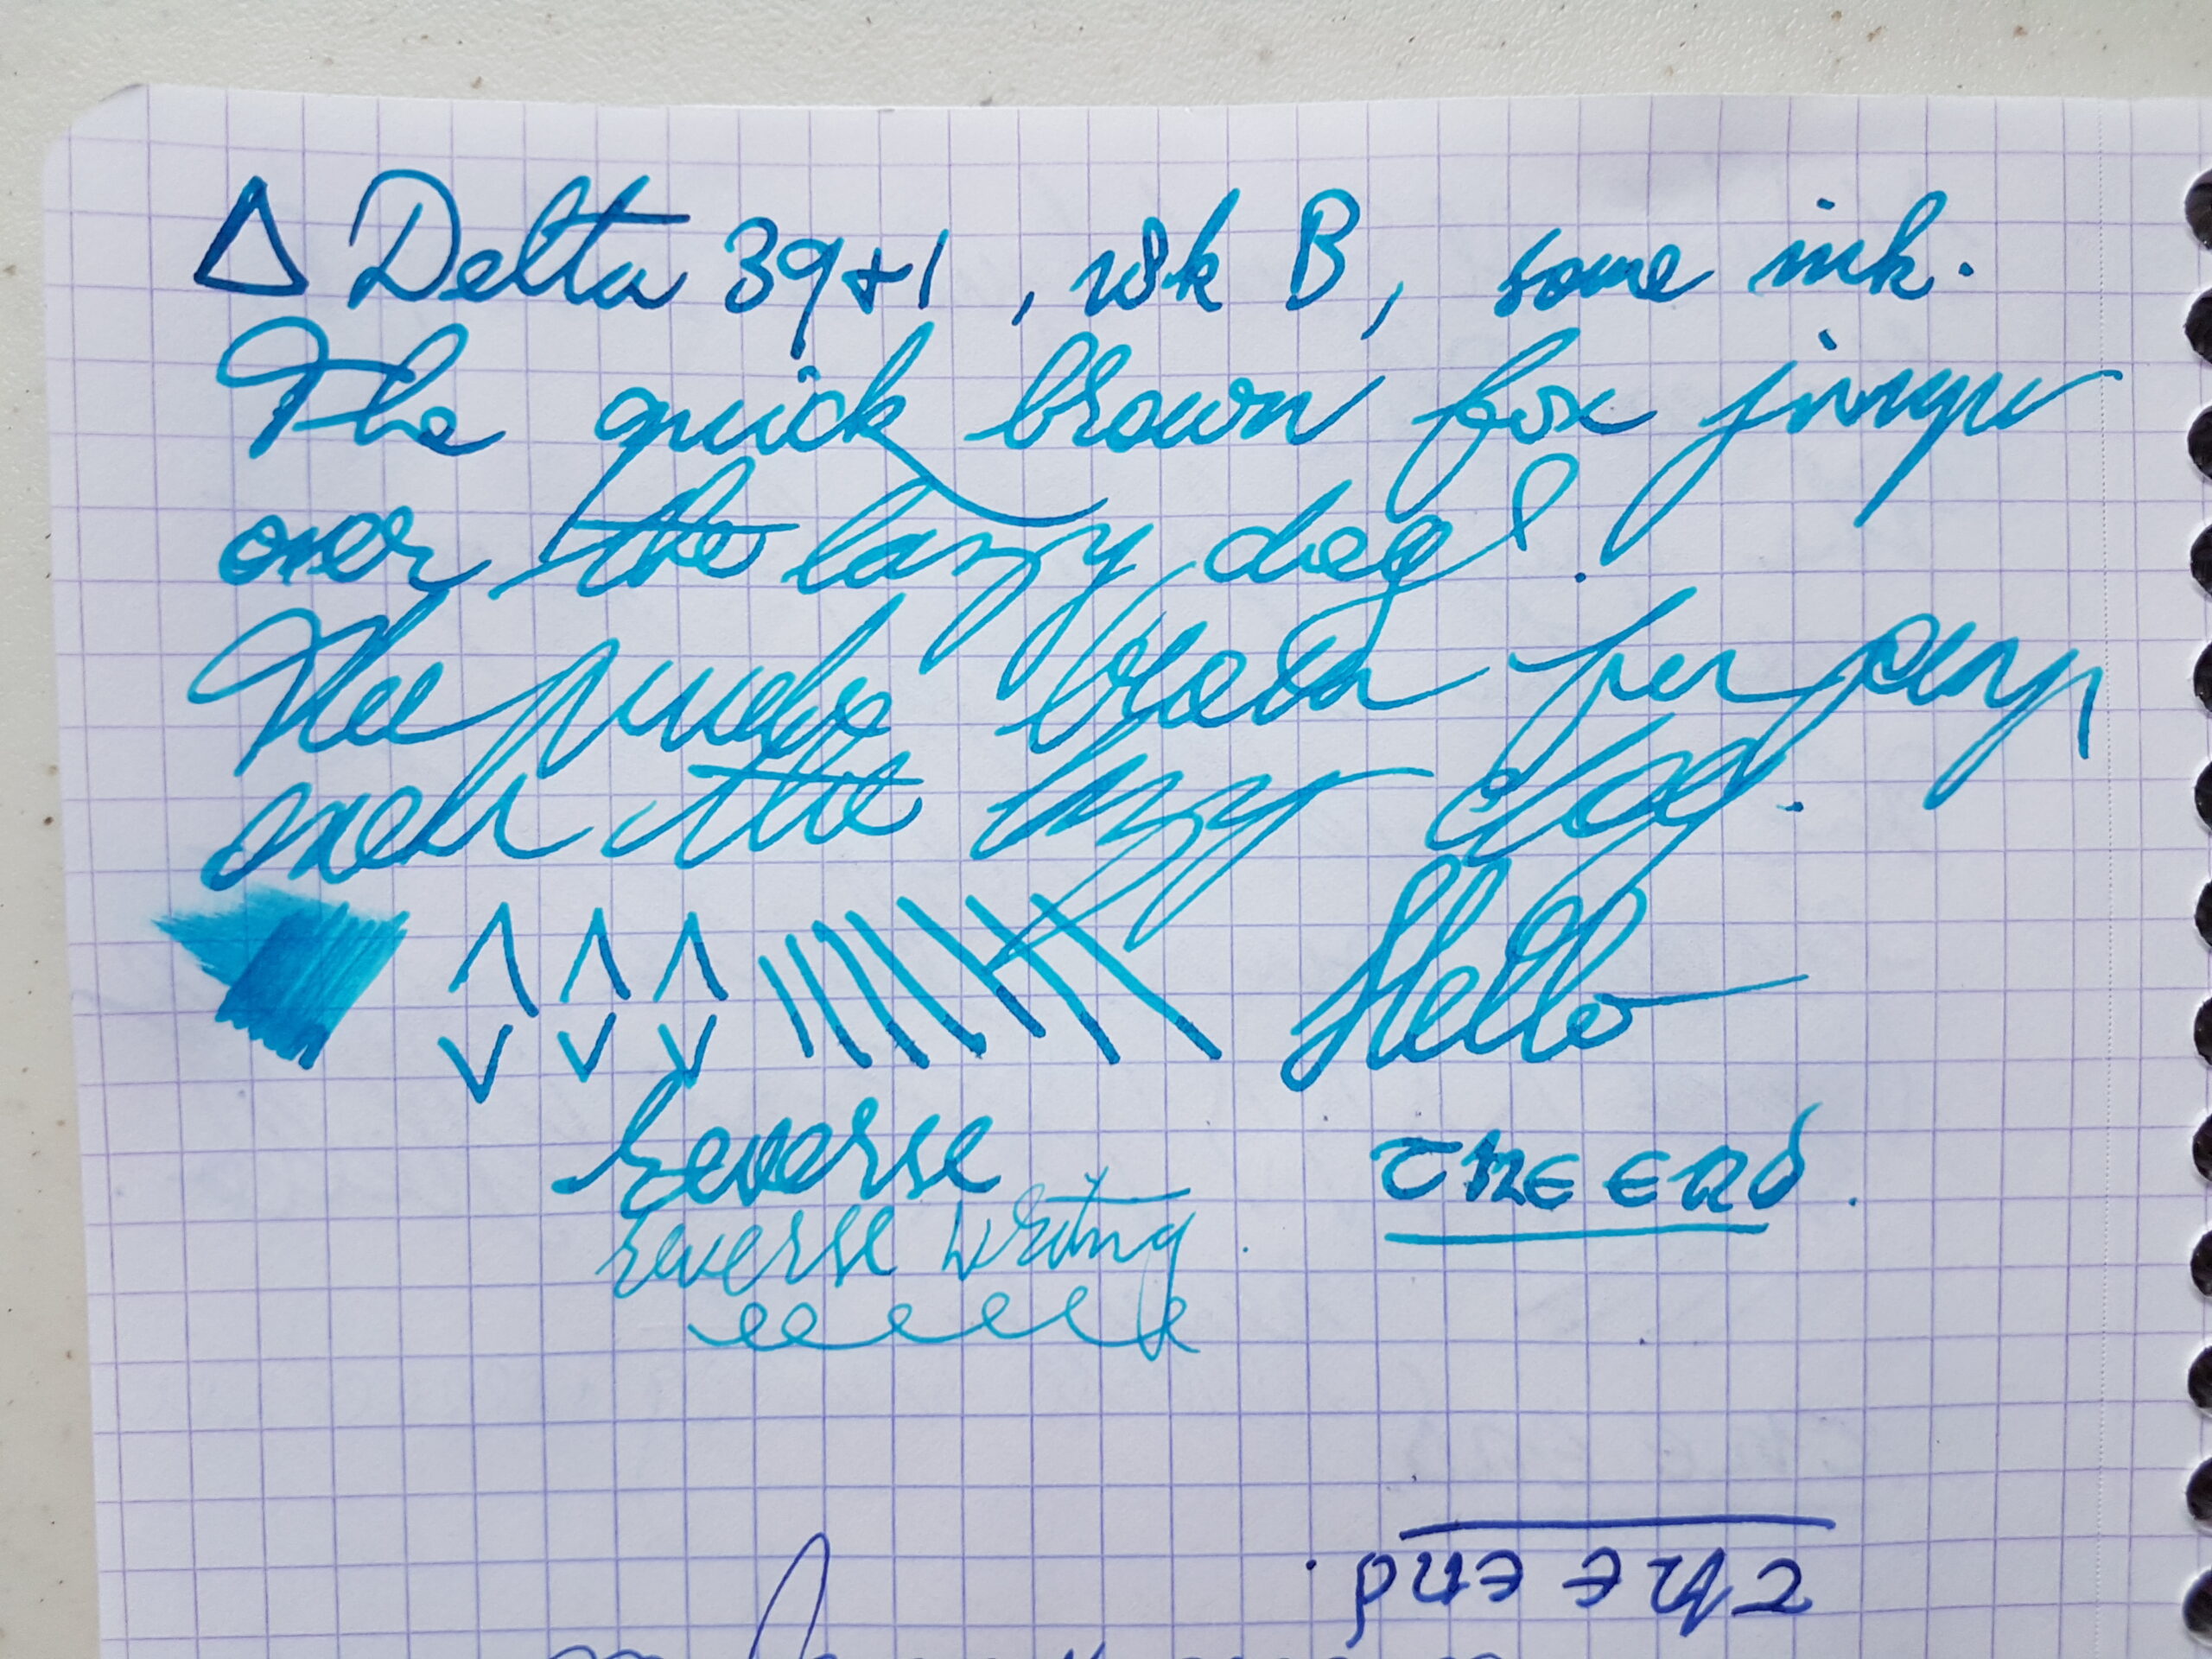 Δ Delta 39+1, 18k B, some ink.
The quick brown fox jumps
over the lazy dog!.
The quick brown fox jumps
over the lazy dog.
Hello
Reverse
reverse writing.
the end.
the end.